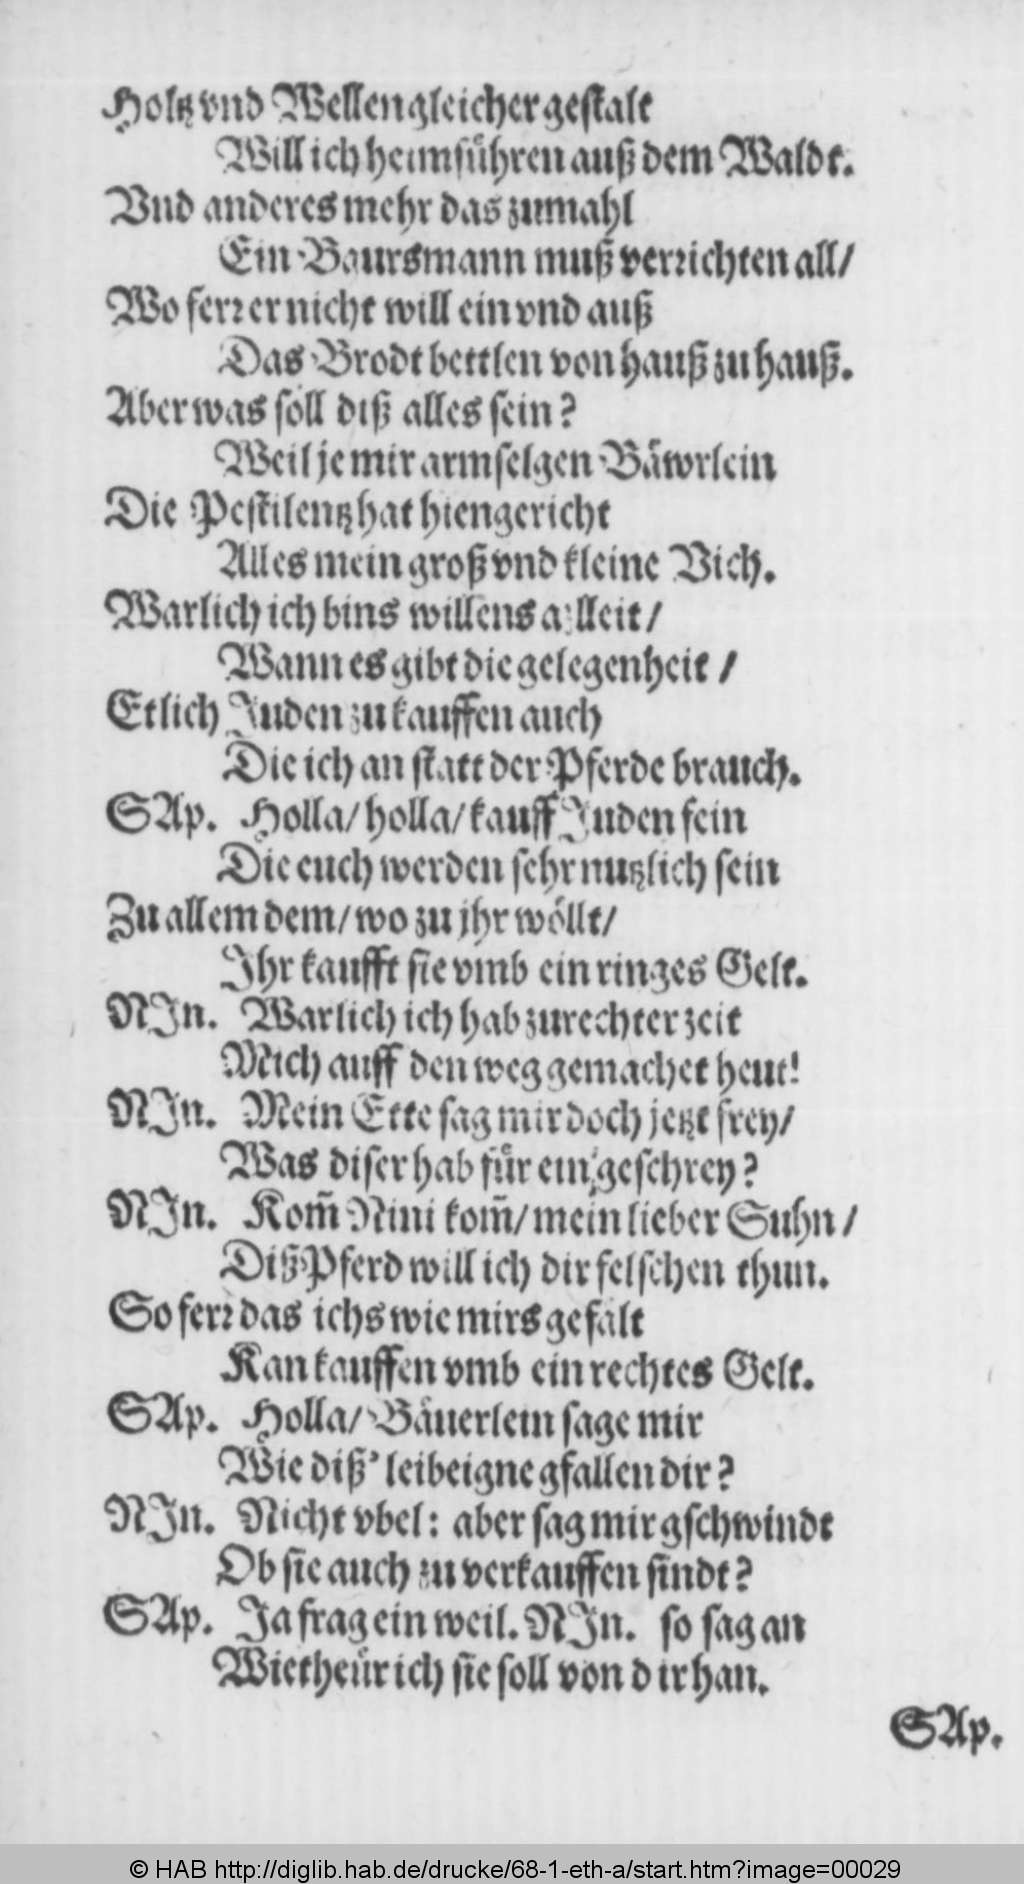 Holtz vnd Wellen gleicher gestalt
Will ich heimführen auß dem Waldt.
Vnd anderes mehr das zumahl
Ein Baursmann muß verrichten all/
Wo ferr er nicht will ein vnd auß
Das Brodt bettlen von hauß zu hauß.
Aber was soll diß alles sein?
Weil je mir armselgen Bäwrlein
Die Pestilentz hat hiengericht
Alles mein groß vnd kleine Vich.
Warlich ich bins willens azlleit/
Wann es gibt die gelegenheit /
Etlich Juden zu kauffen auch
Die ich an statt der Pferde brauch.
SAp. Holla/ holla/ kauff Juden fein
Die euch werden sehr nutzlich sein
Zu allem dem/ wo zu jhr wöllt/
Ihr kaufft sie vmb ein ringes Gelt.
NIn. Warlich ich hab zurechter zeit
Mich auff den weg gemachet heut!
NIn. Mein Ette sag mir doch jetzt frey/
Was diser hab für ein geschrey?
NIn. Kom̃ Nini kom̃/ mein lieber Suhn /
Diß Pferd will ich dir felschen thun.
So ferr das ichs wie mirs gefalt
Kan kauffen vmb ein rechtes Gelt.
SAp. Holla/ Bäuerlein sage mir
Wie diß' leibeigne gfallen dir?
NIn. Nicht vbel: aber sag mir gschwindt
Ob sie auch zu verkauffen sindt?
SAp. Ja frag ein weil. NIn. so sag an
Wie theür ich sie soll von dir han.
SAp.
© HAB http://diglib.hab.de/drucke/68-1-eth-a/start.htm?image=00029